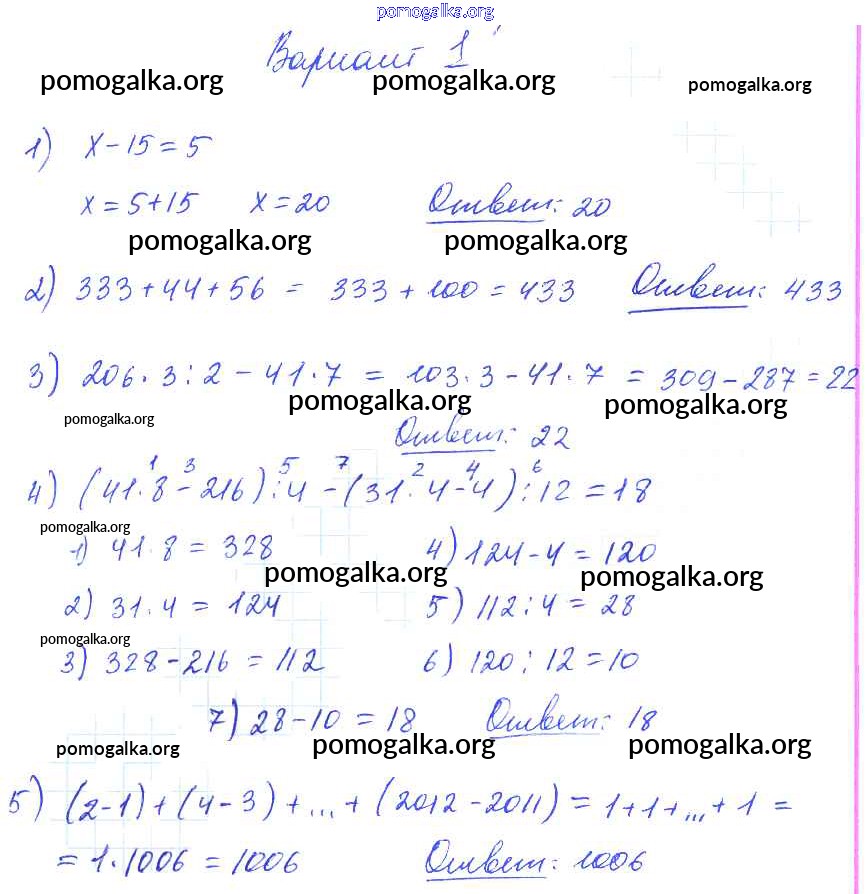 pomogalka.org
Вариант 1
pomogalka.org pomogalka.org pomogalka.org
1) x - 15 = 5
x = 5+15 x = 20 Ответ: 20
pomogalka.org pomogalka.org
2) 333 + 44 + 56 = 333 + 100 = 433 Ответ: 433
3) 206 · 3 : 2 - 41 · 7 = 103 · 3 - 41 · 7 = 309 - 287 = 22
pomogalka.org pomogalka.org
pomogalka.org
Ответ: 22
1 3 5 7 2 4 6
4) (41 · 8 - 216) : 4 - (31 · 4 - 4) : 12 = 18
pomogalka.org
1) 41 · 8 = 328 4) 124 - 4 = 120
pomogalka.org pomogalka.org
2) 31 · 4 = 124 5) 112 : 4 = 28
pomogalka.org
3) 328 - 216 = 112 6) 120 : 12 = 10
7) 28 - 10 = 18 Ответ: 18
pomogalka.org pomogalka.org pomogalka.org
5) (2-1) + (4-3) + ... + (2012 - 2011) = 1+1+...+1 =
= 1 · 1006 = 1006 Ответ: 1006